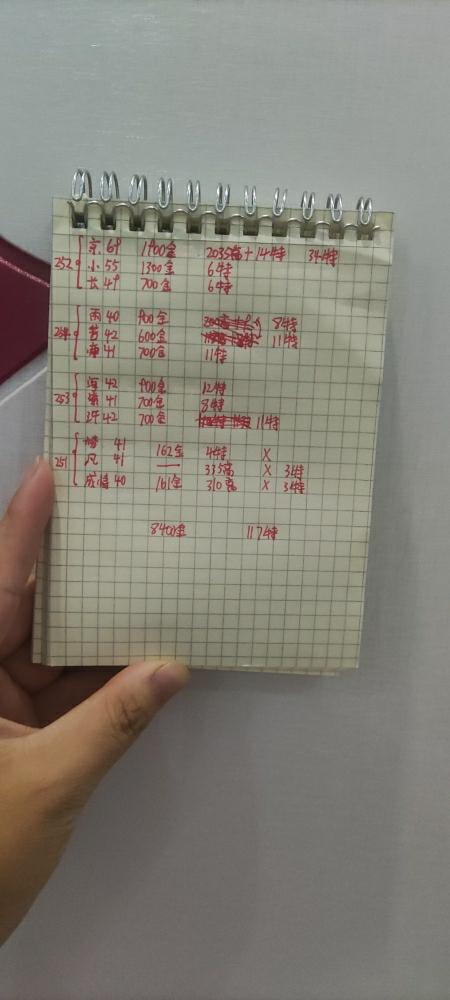 252 { 京 69 1900金 2035高+14特 34特
小 55 1300金 6特
长 49 700金 6特
雨 40 900金 8特
芳 42 600金 11特
41 700金 11特
253 { 42 900金 12特
41 700金 8特
牙 42 700金 11特
251 { 41 162金 4特 X
凡 41 — 335高 X 3特
成峰 40 161金 310高 X 3特
8400金 117特